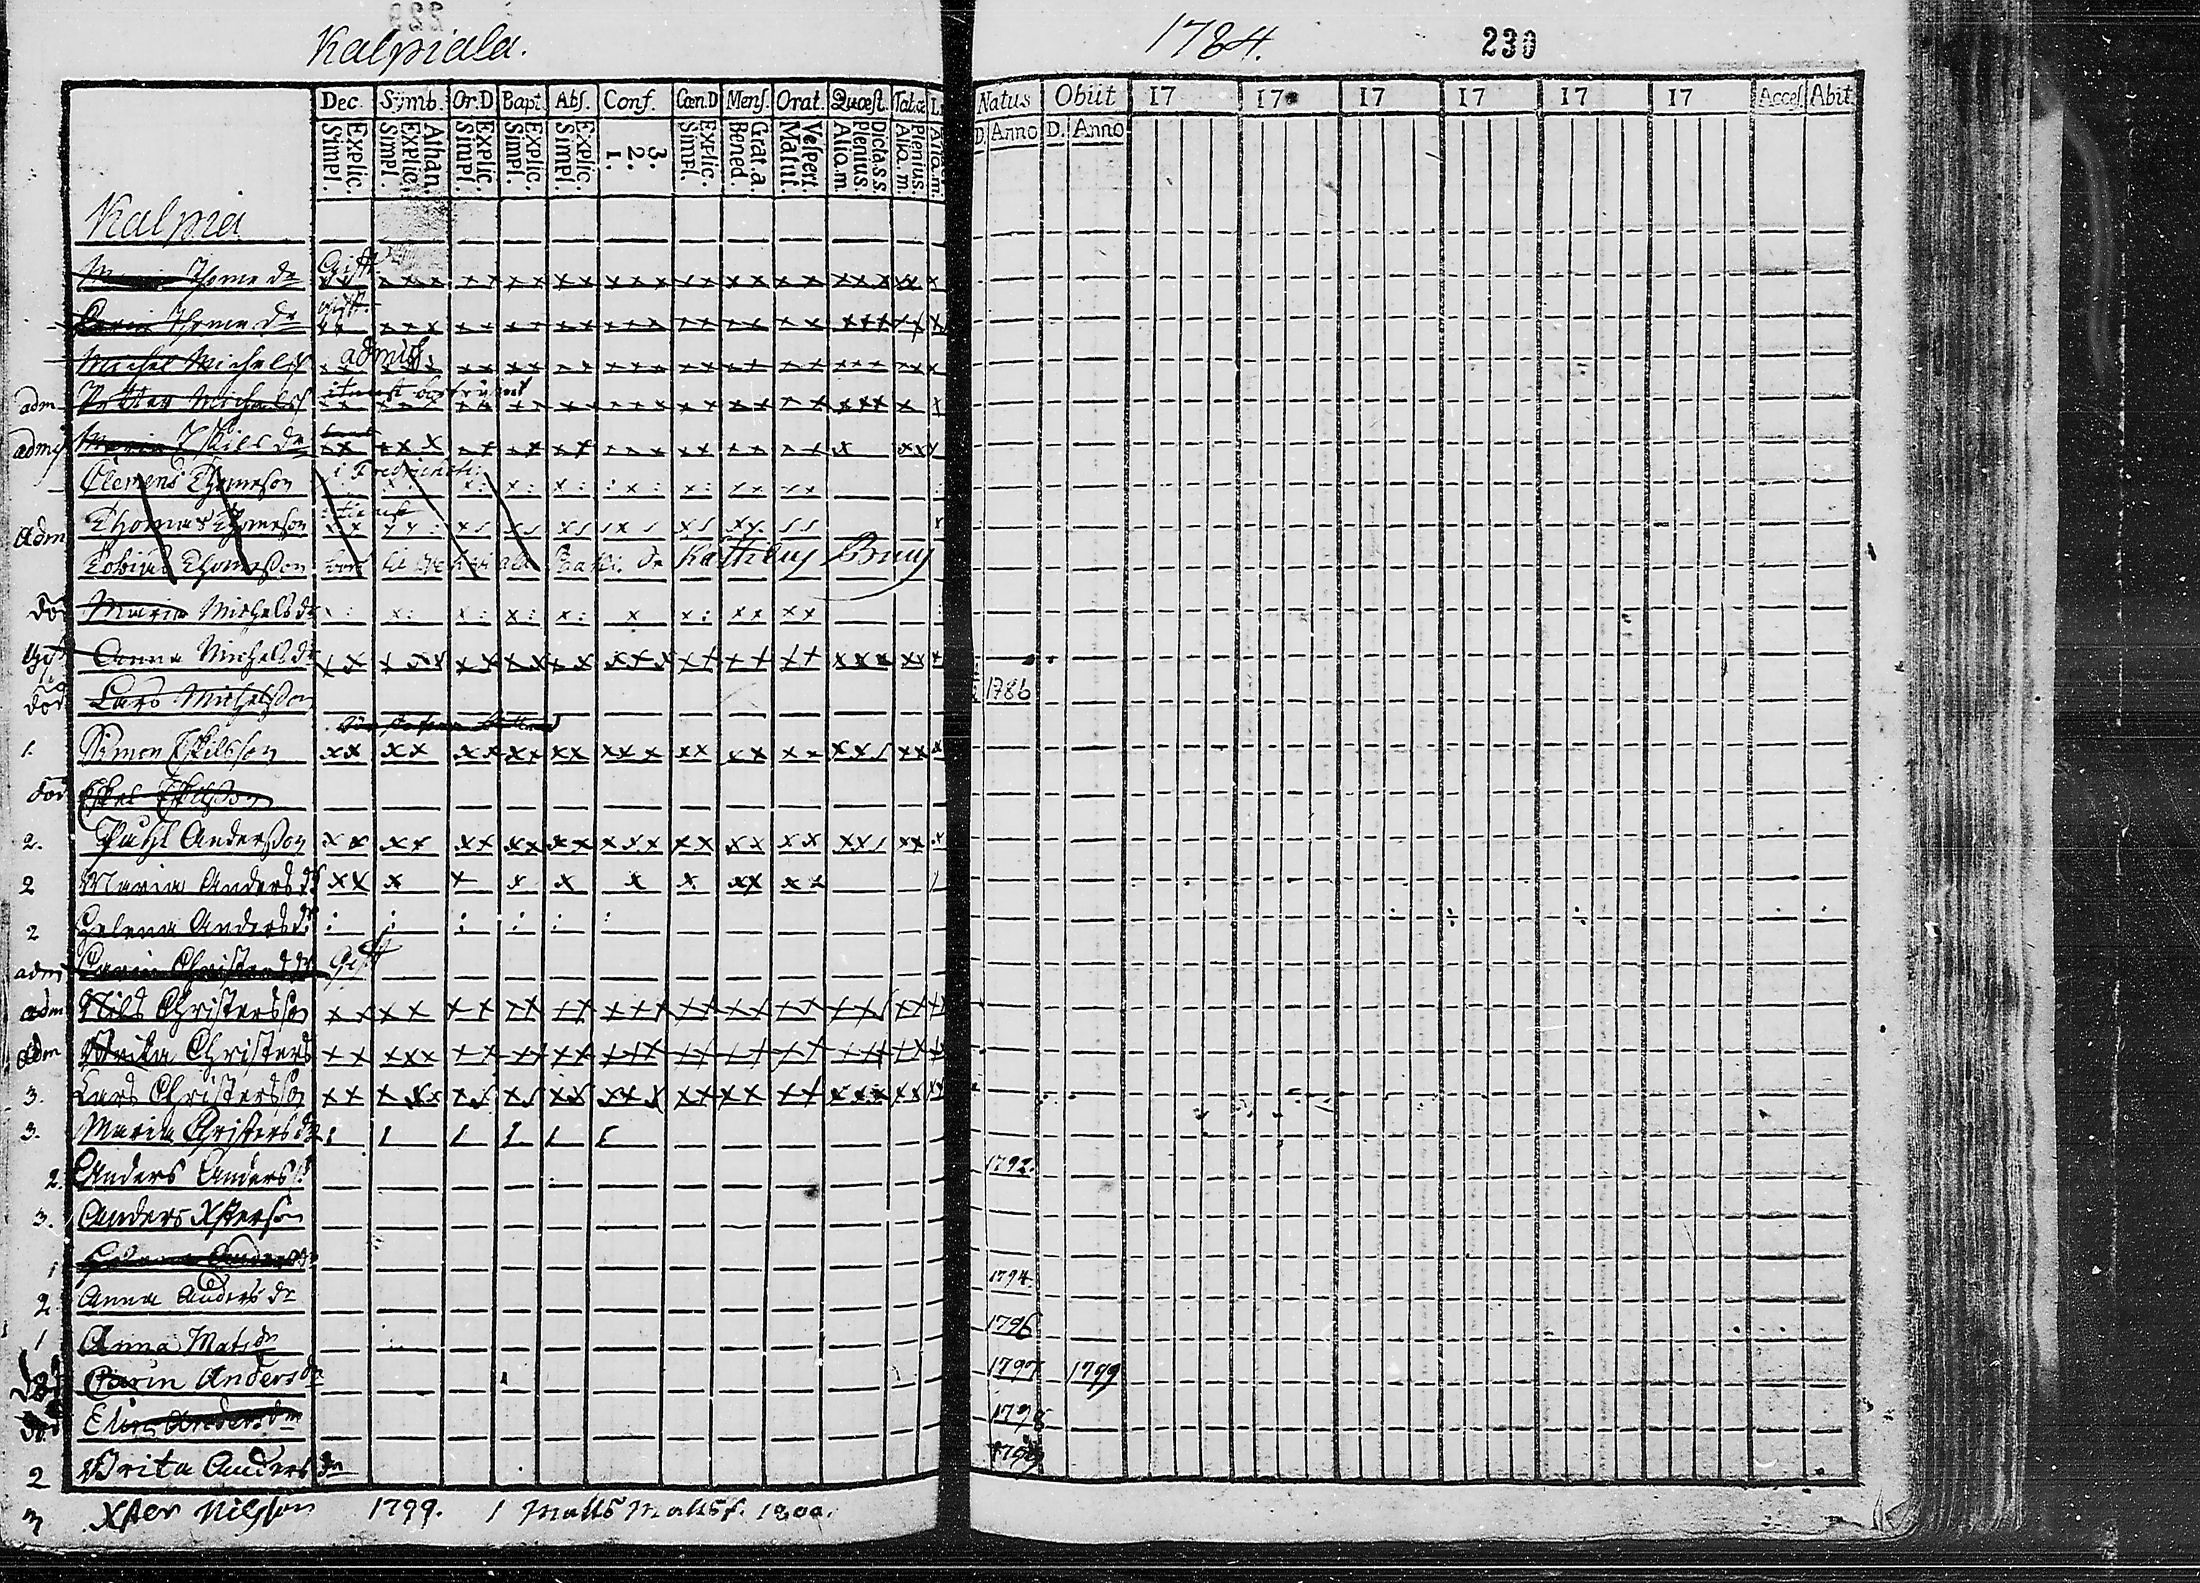 Kalpiala.
1784.
230
Dec. Symb. Or.D Bapt. Abs. Conf. Cœn.D Mens. Orat. Quæst. Tab.œ
Natus Obiit 17 17 17 17 17 17 Acces. Abit.
D. Anno D. Anno
Explic. Simpl.
Athan. Explic. Simpl.
Explic. Simpl.
Explic. Simpl.
Explic. Simpl.
3. 2. 1.
Explic. Simpl.
Grat.a. Bened.
Vespert. Matut.
Dicta s.s. Plenius. Aliq.m.
Plenius. Aliq.m.
Kalpia
Maria Thome dr Gift
Carin Thome dr gift
Michel Michelss admiss
adm Petter Michelss
adm Maria Eskils dr
Clemens Thomeson i Fredrichsh:
adm Thomas Thomeson
Tobias Thomeson
död Maria Michels dr
Gift Anna Michels dr
död Lars Michelsson 1786
1. Simon Eskilsson
död Eskel Eskilsson
2. Påhl Andersson
2 Maria Anders dr
2 Helena Anders dr
adm Carin Christers dr Gift
adm Nils Christersson
adm Brita Christers
3. Lars Christersson
3. Maria Christers dr
2. Anders Anderss 1792.
3. Anders Xsterson
1 Helena Anders dr
2 Anna Anders dr 1794.
1 Anna Mats dr 1796
död Carin Anders dr 1797 1799
död Elin Anders dr 1798
2 Brita Anders dr 1799
3 Xster Nilsson 1799. 1 Matts Mattss. 1800.